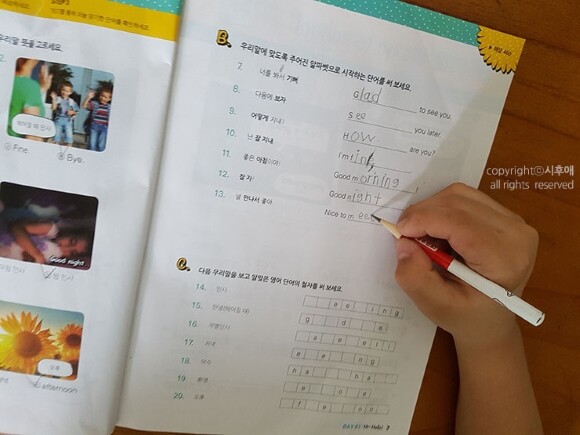 우리말 뜻을 고르세요.
헤어질 때 인사
Fine.
Bye.
Good night
밤 인사
오후
afternoon
B. 우리말에 맞도록 주어진 알파벳으로 시작하는 단어를 써 보세요.
7. 너를 봐서 기뻐 Glad to see you.
8. 다음에 보자 See you later.
9. 어떻게 지내? How are you?
10. 난 잘 지내 I'm fine,
11. 좋은 아침이야! Good morning !
12. 잘 자! Good night
13. 널 만나서 좋아 Nice to m ee
C. 다음 우리말을 보고 알맞은 영어 단어의 철자를 써 보세요.
14. 인사 e e i n g
15. g d e
16.
17. 저녁 e e n g
18. 악수 h a h a
19. 환영 e o e
20. 오후 f e o o
DAY 01 Hi-Hello! 7
copyrightⓒ시후애
all rights reserved